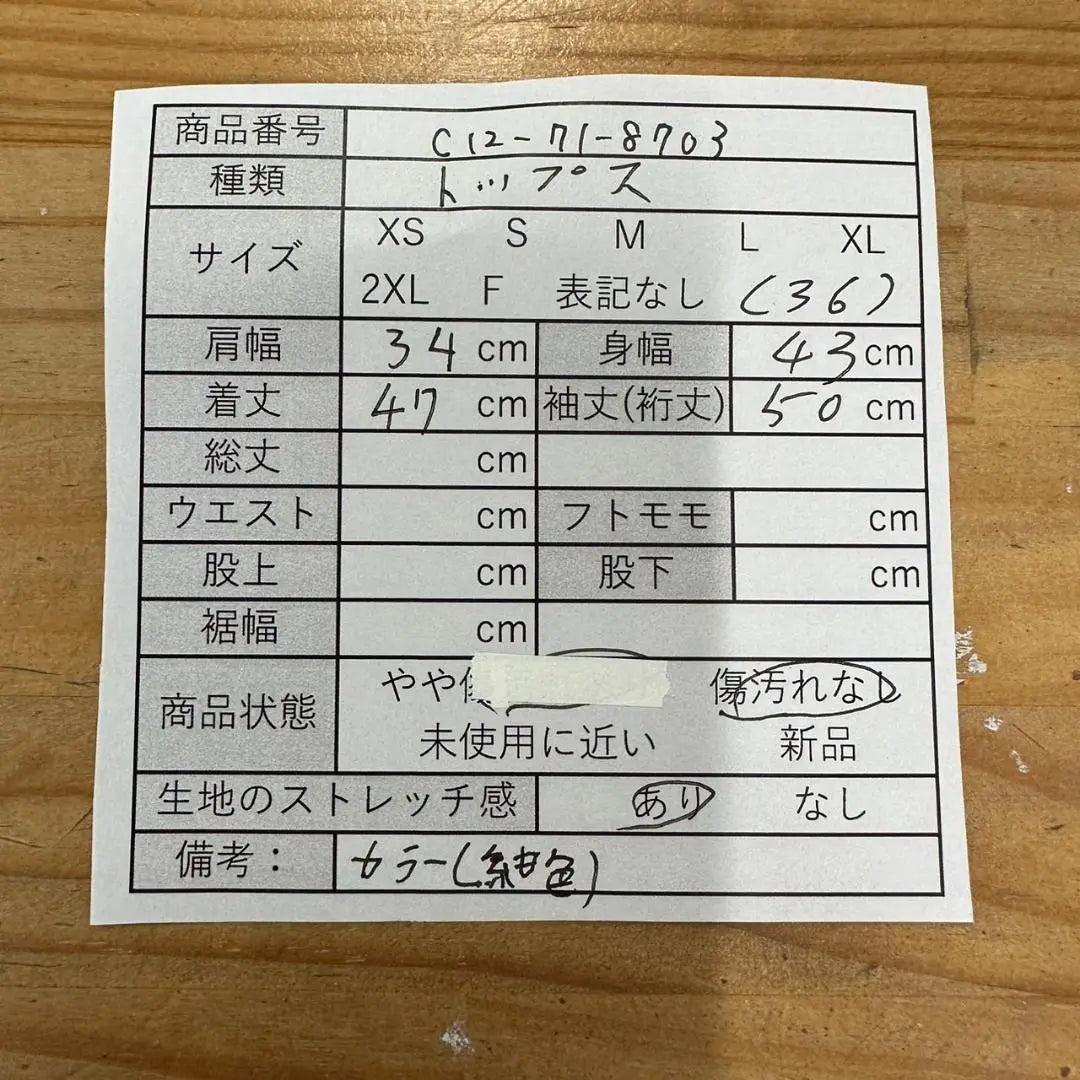 商品番号 C12-71-8703
種類 トップス
サイズ XS S M L XL
2XL F 表記なし (36)
肩幅 34 cm 身幅 43 cm
着丈 47 cm 袖丈(裄丈) 50 cm
総丈 cm
ウエスト cm フトモモ cm
股上 cm 股下 cm
裾幅 cm
商品状態 やや 傷汚れなし
未使用に近い 新品
生地のストレッチ感 あり なし
備考: カラー(紺色)